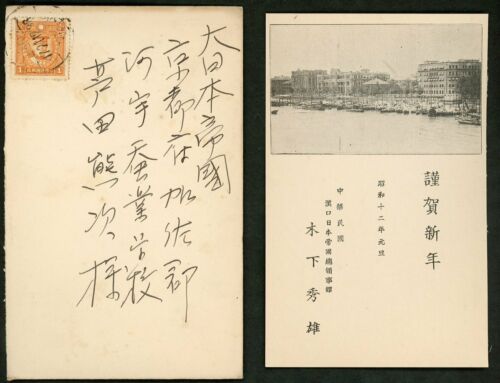 大日本帝國
京都府加佐郡
河守蚕業学校
芦田熊次様
謹賀新年
昭和十二年元旦
中華民國
漢口日本帝國總領事館
木下秀雄